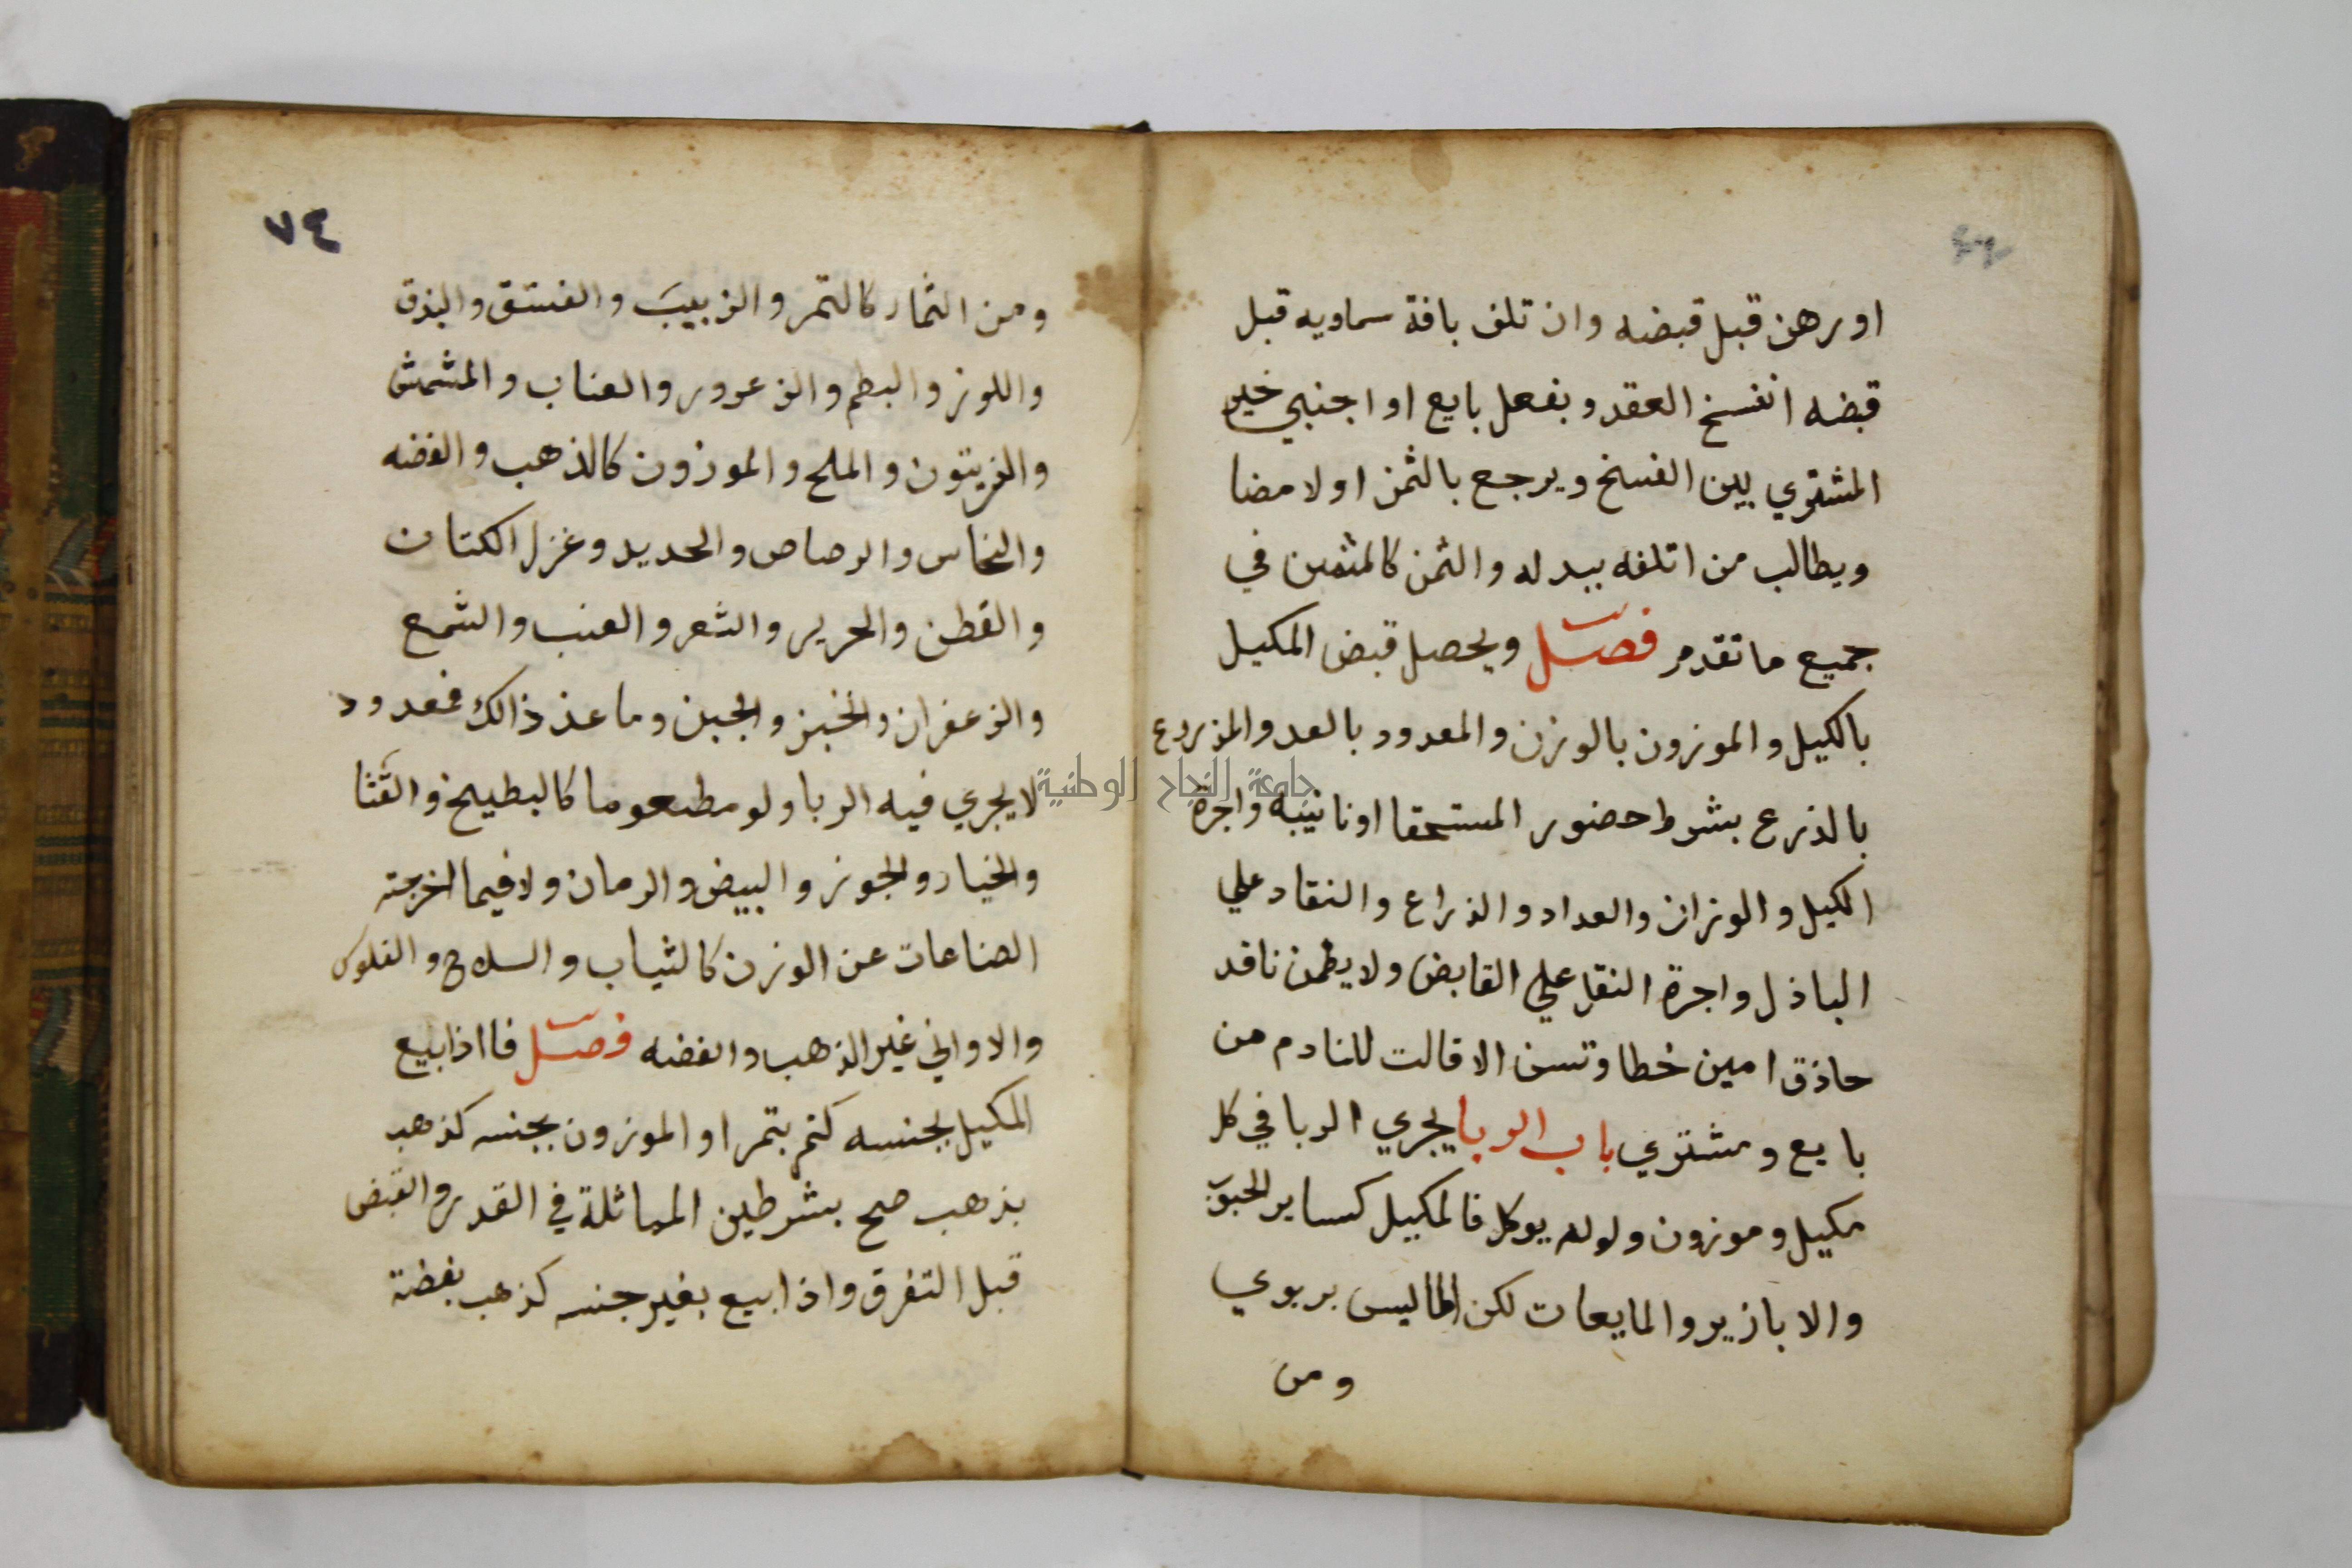 او رهن قبل قبضه وان تلف بافة سماويه قبل
قبضه انفسخ العقد وبفعل بايع او اجنبي خير
المشتري بين الفسخ ويرجع بالثمن اولا مضا
ويطالب من اتلفه ببدله والثمن كالمثمن في
جميع ما تقدم فصل ويحصل قبض المكيل
بالكيل والموزون بالوزن والمعدود بالعد والمذروع
بالذرع بشرط حضور المستحقا او نائبه واجرة
الكيل والوزان والعداد والذراع والنقاد علي
الباذل واجرة النقل علي القابض ولا يضمن ناقد
حاذق امين خطا وتسن الاقالت للنادم من
بايع ومشتري باب الربا يجري الربا في كل
مكيل وموزون ولو لم يوكل فالمكيل كساير الحبوب
والابازير والمايعات لكن الماليس بربوي
ومن
٧٤
ومن الثمار كالتمر والزبيب والفستق والبندق
واللوز والبطم والزعرور والعناب والمشمش
والزيتون والملح والموزون كالذهب والفضه
والنحاس والرصاص والحديد وغزل الكتان
والقطن والحرير والشعر والعنب والشمع
والزعفران والخبز والجبن وما عد ذالك فمعدود
لا يجري فيه الربا ولو مطعوما كالبطيخ والقثا
والخيار والجوز والبيض والرمان ولا فيما اخرجته
الصناعات عن الوزن كالثياب والسلاح والفلوس
والاواني غير الذهب والفضه فصل فااذا بيع
المكيل بجنسه كتمر بتمر او الموزون بجنسه كذهب
بذهب صح بشرطين المماثلة في القدر والقبض
قبل التفرق واذا بيع بغير جنسه كذهب بفضة
جامعة النجاح الوطنية